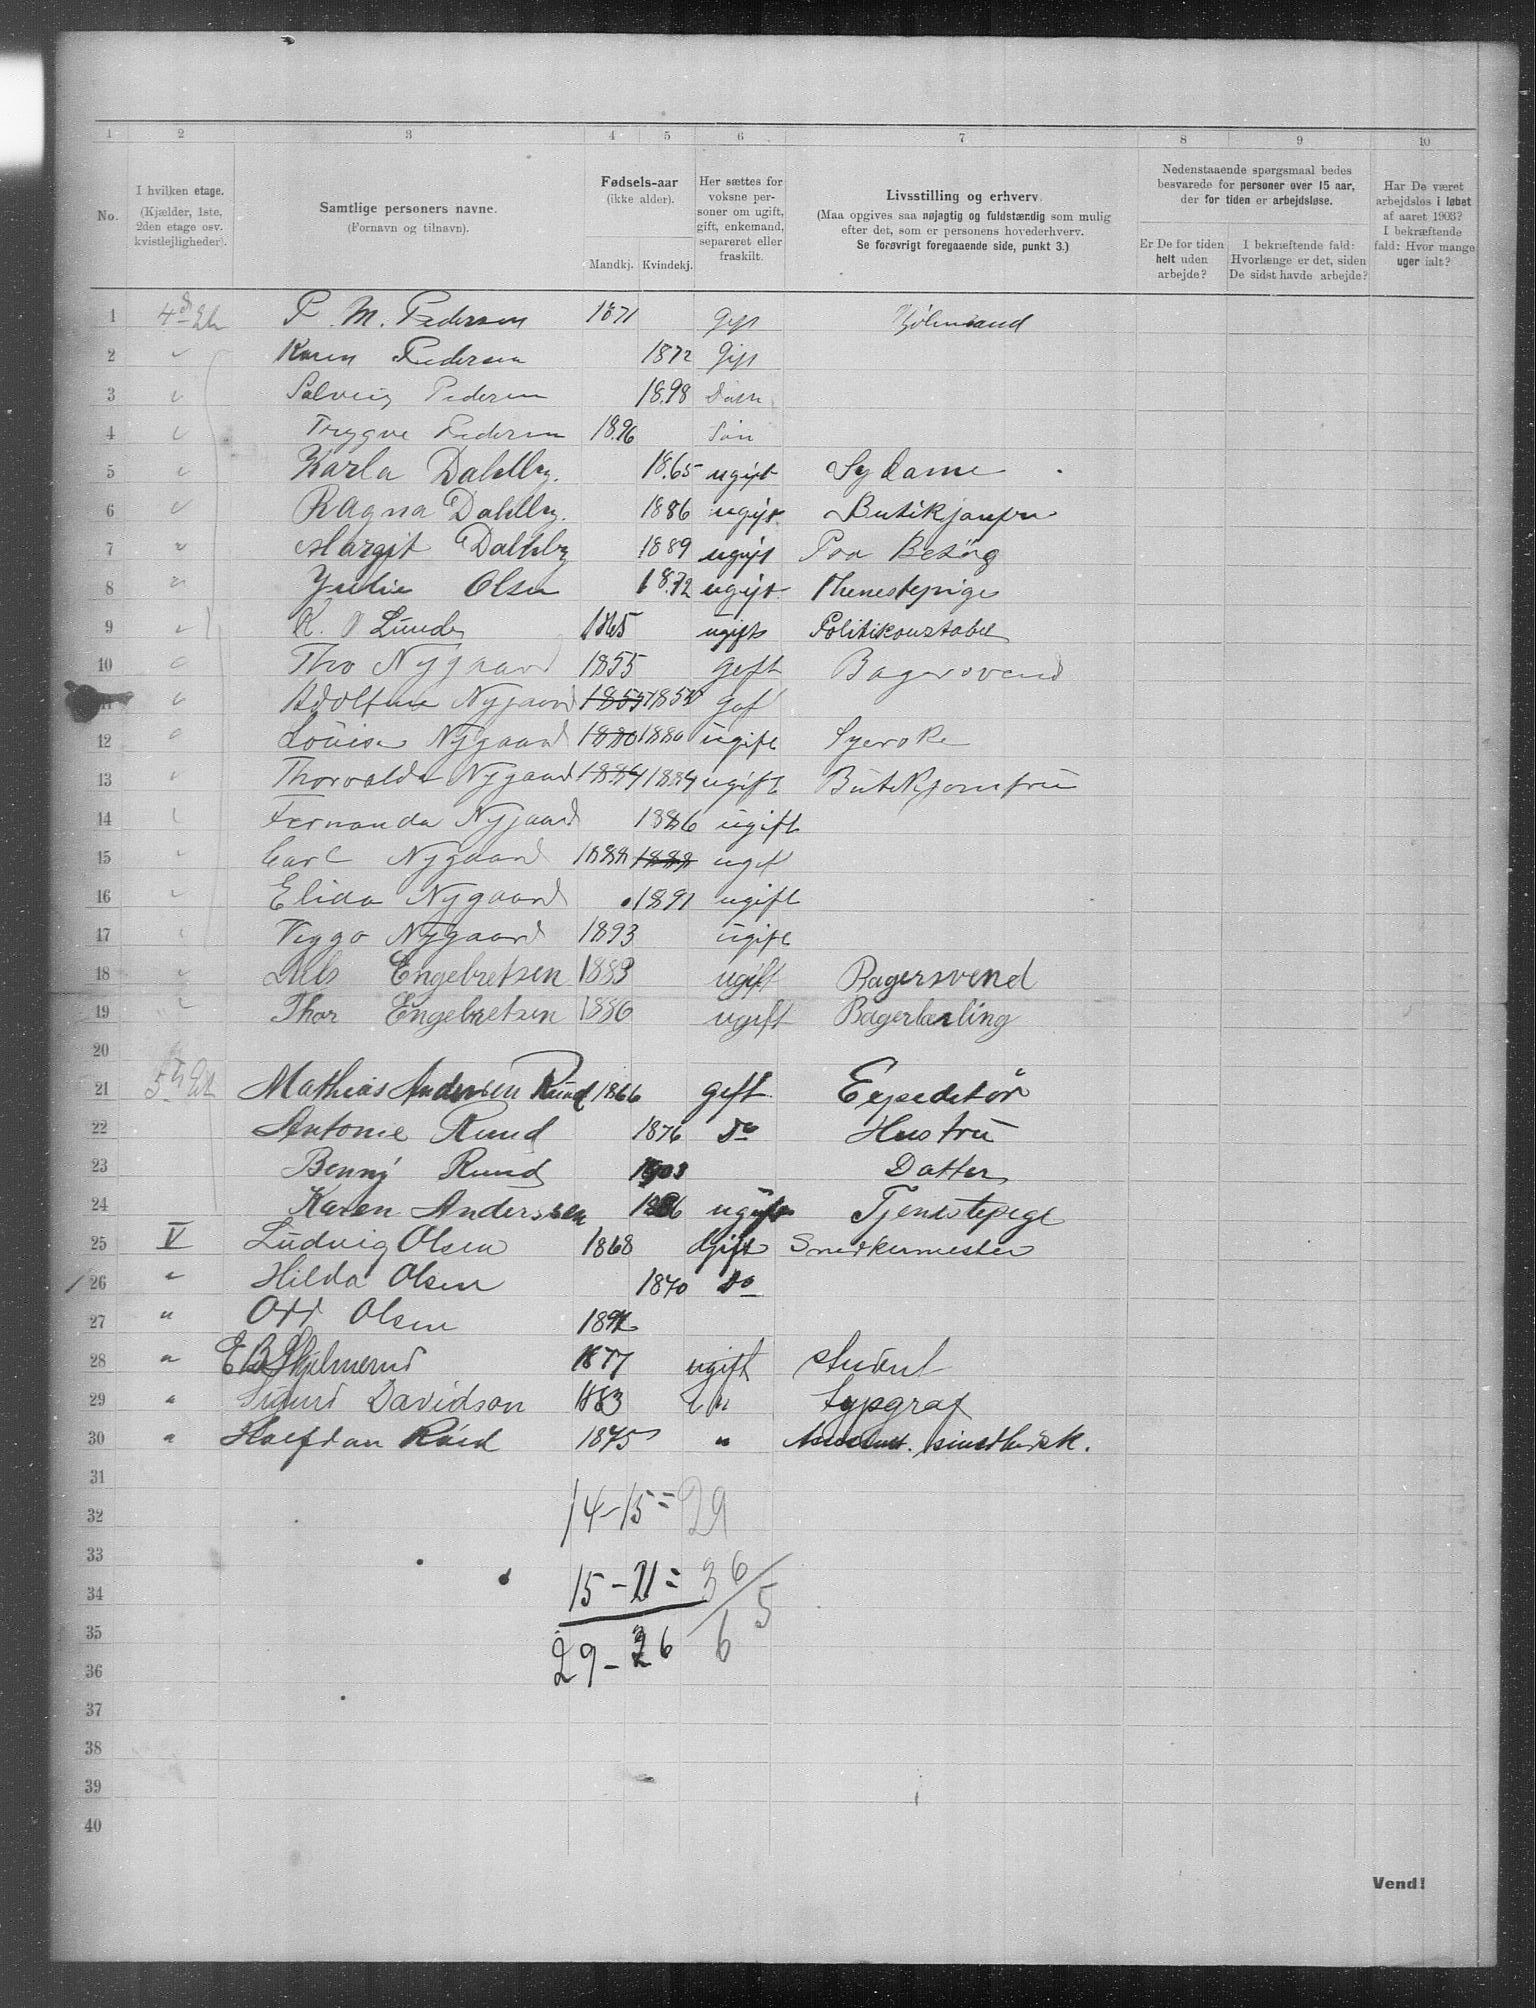 1 2 3 4 5 6 7 8 9 10
No.
I hvilken etage.
(Kjælder, 1ste,
2den etage osv.
kvistlejligheder).
Samtlige personers navne.
(Fornavn og tilnavn).
Fødsels-aar
(ikke alder).
Mandkj. Kvindekj.
Her sættes for
voksne per-
soner om ugift,
gift, enkemand,
separeret eller
fraskilt.
Livsstilling og erhverv.
(Maa opgives saa nøjagtig og fuldstændig som mulig
efter det, som er personens hovederhverv.
Se forøvrigt foregaaende side, punkt 3.)
Nedenstaaende spørgsmaal bedes
besvarede for personer over 15 aar,
der for tiden er arbejdsløse.
Er De for tiden
helt uden
arbejde?
I bekræftende fald:
Hvorlænge er det, siden
De sidst havde arbejde?
Har De været
arbejdsløs i løbet
af aaret 1903?
I bekræftende
fald: Hvor mange
uger ialt?
1 P. M. Pedersen 1871 Gift
2 Karen Pedersen 1872 Gift
3 Solveig Pedersen 1898 Datn
4 Trygve Pedersen 1896 Søn
5 Karla Dahlby. 1865 ugift Sydame
6 Ragna Dahlby. 1886 ugift Butikjomfru
7 Margit Dahlby 1889 ugift Paa Besøg
8 Julie Olsen 1872 ugift Thenestepige
9 K. O Lunde 1865 ugift Politikonstabel
10 Tho Nygaard 1855 Geft Bagersvend
11 Adolfine Nygaard 1855 Gef
12 Louise Nygaard 1880 1880 ugift Syerske
13 Thorvalda Nygaard 1884 1884 ugift Butikjomfru
14 Fernanda Nygaard 1886 ugift
15 Carl Nygaard 1888 1888 ugift
16 Elida Nygaard 1891 ugift
17 Viggo Nygaard 1893 ugift
18 Nils Engebretsen 1883 ugift Bagersvend
19 Thor Engebretsen 1886 ugift Bagerlærling
20
21 5te Et Mathias Andersen Rund 1866 gift Expeditør
22 Antonie Rund 1876 Do Hustru
23 Benny Rund 1903 Datter
24 Karen Anderssen 1886 ugift Tjenestepige
25 V Ludvig Olsen 1868 Gift Snedkermester
26 " Hilda Olsen 1870 Do
27 " Odd Olsen
28 " 1877 ugift student
29 " Sigurd Davidson 1883 " typograf
30 " Halfdan 1875 "
31
32
33
34
35
36
37
38
39
40
14-15=29
15-21=36
29-36 65
Vend!